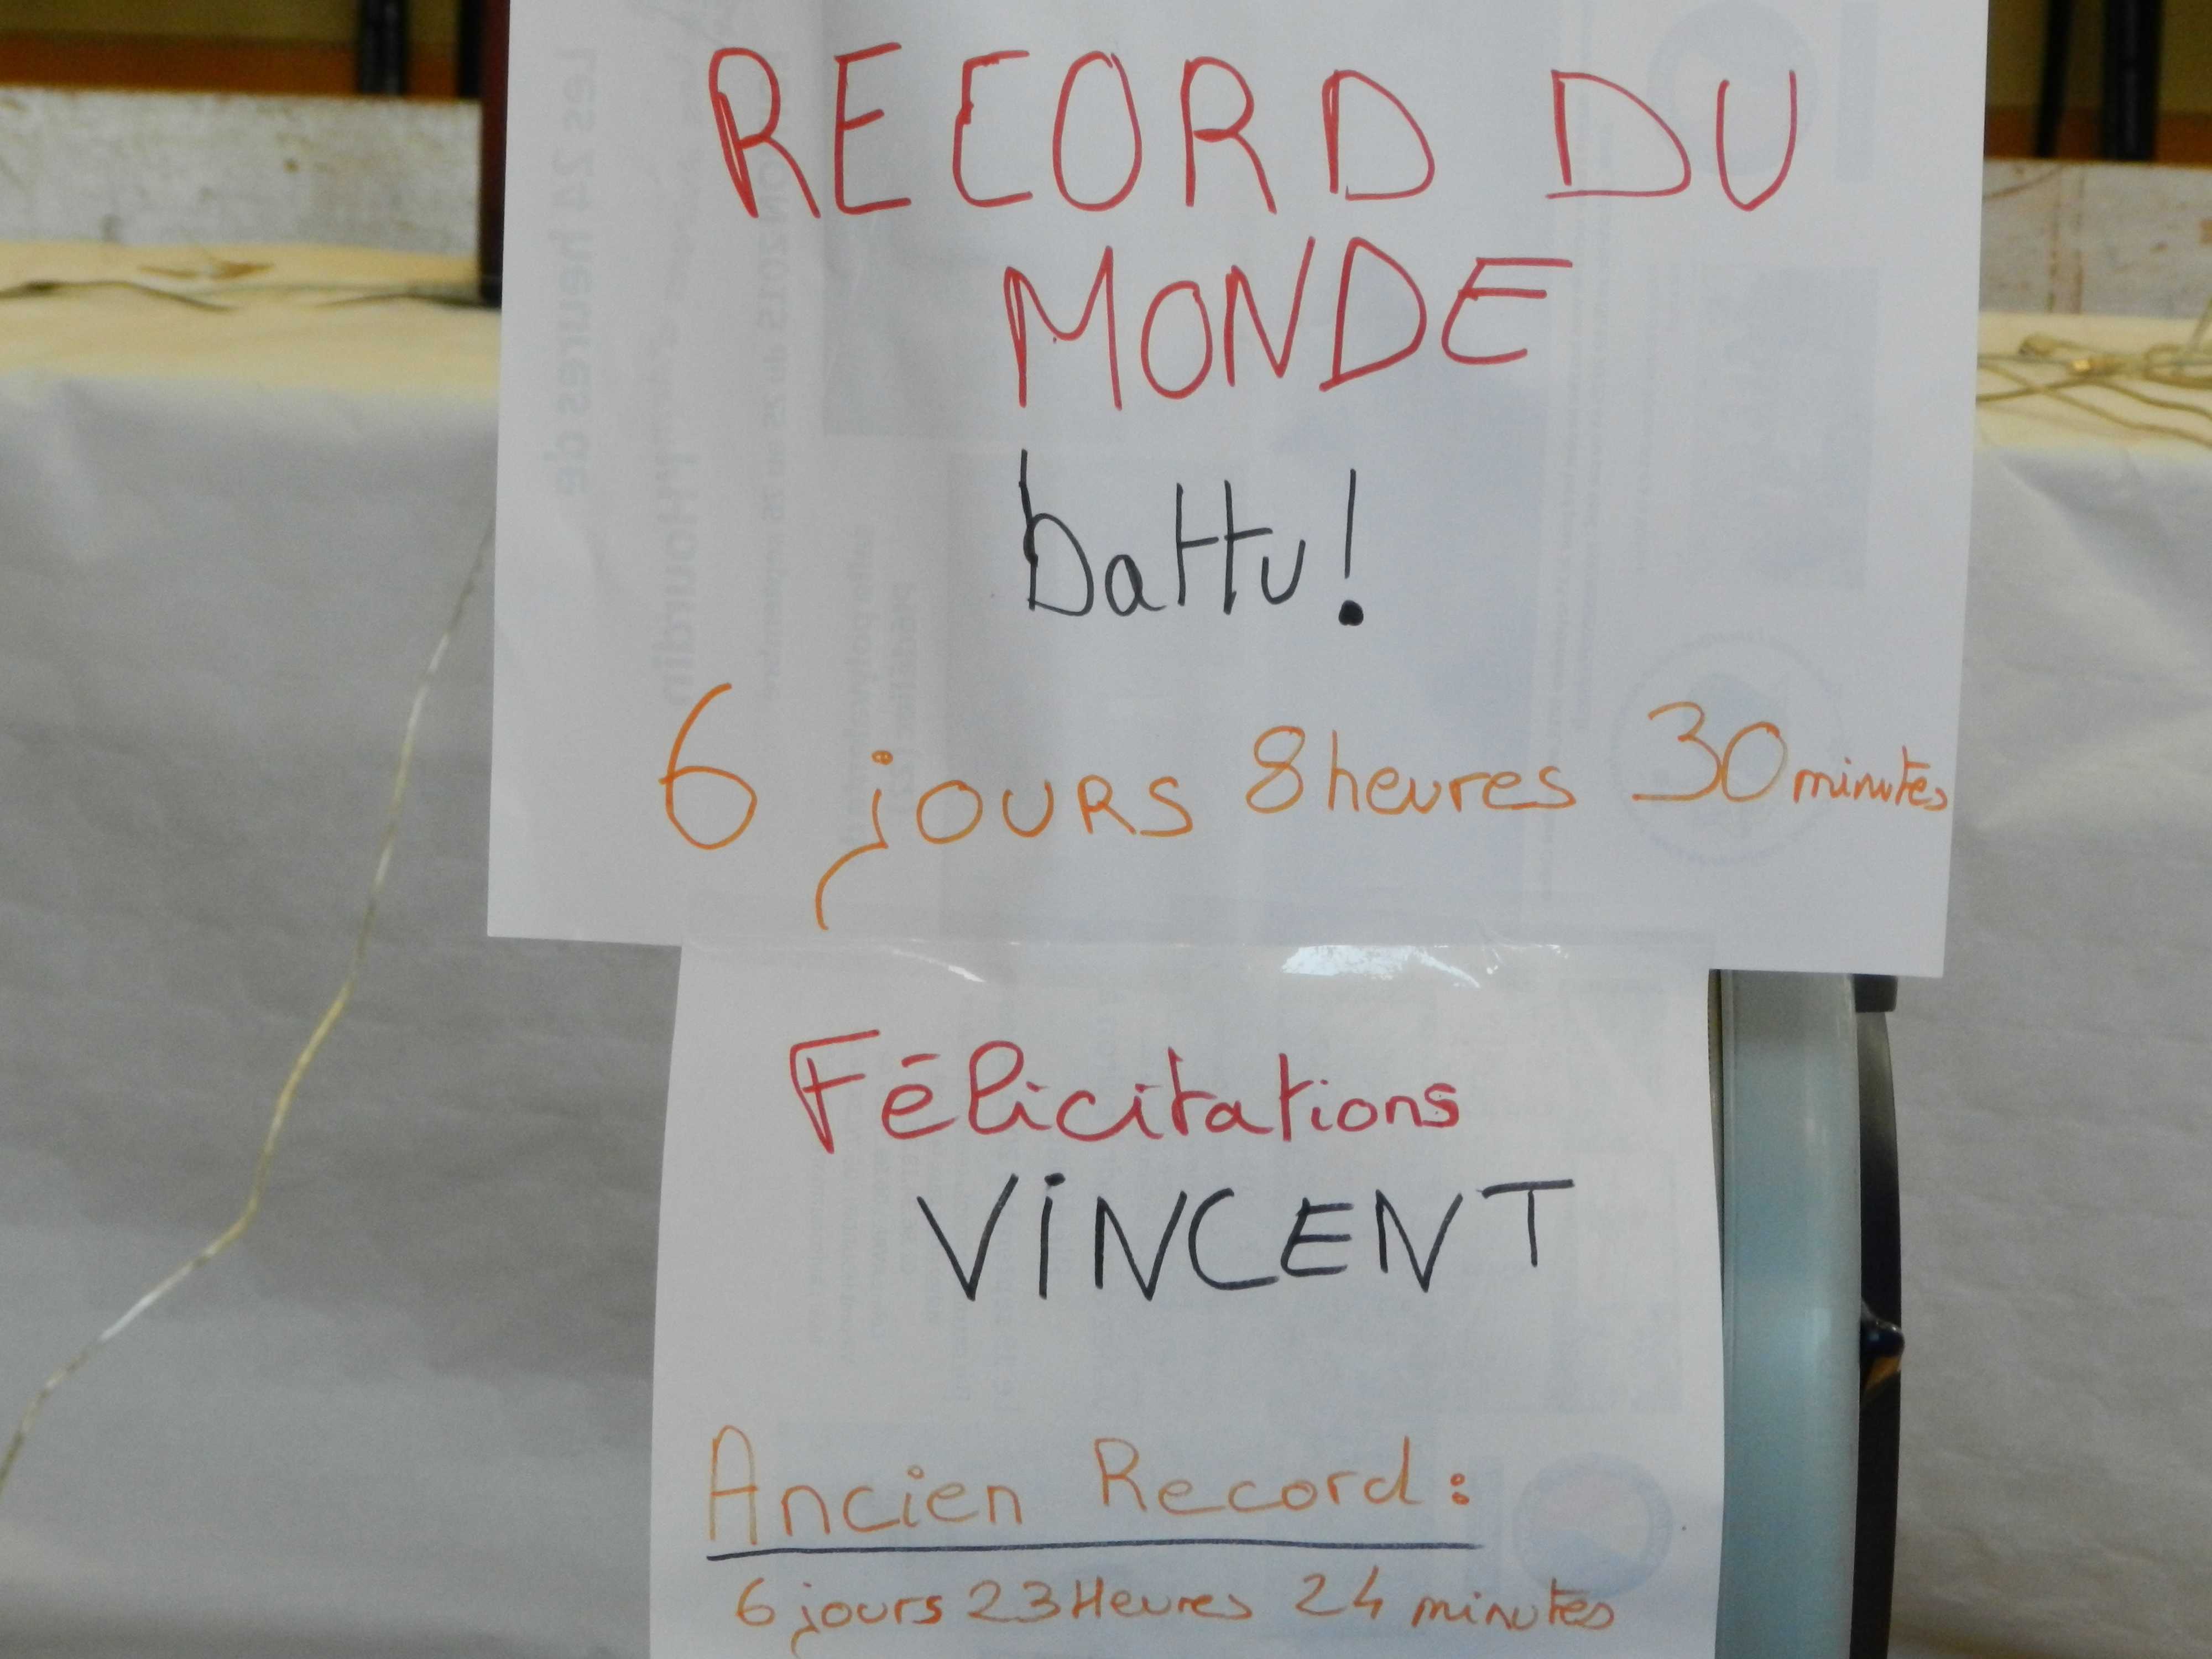 RECORD DU
MONDE
battu!
6 jours 8heures 30minutes
Félicitations
ViNCENT
Ancien Record:
6 jours 23Heures 24 minutes